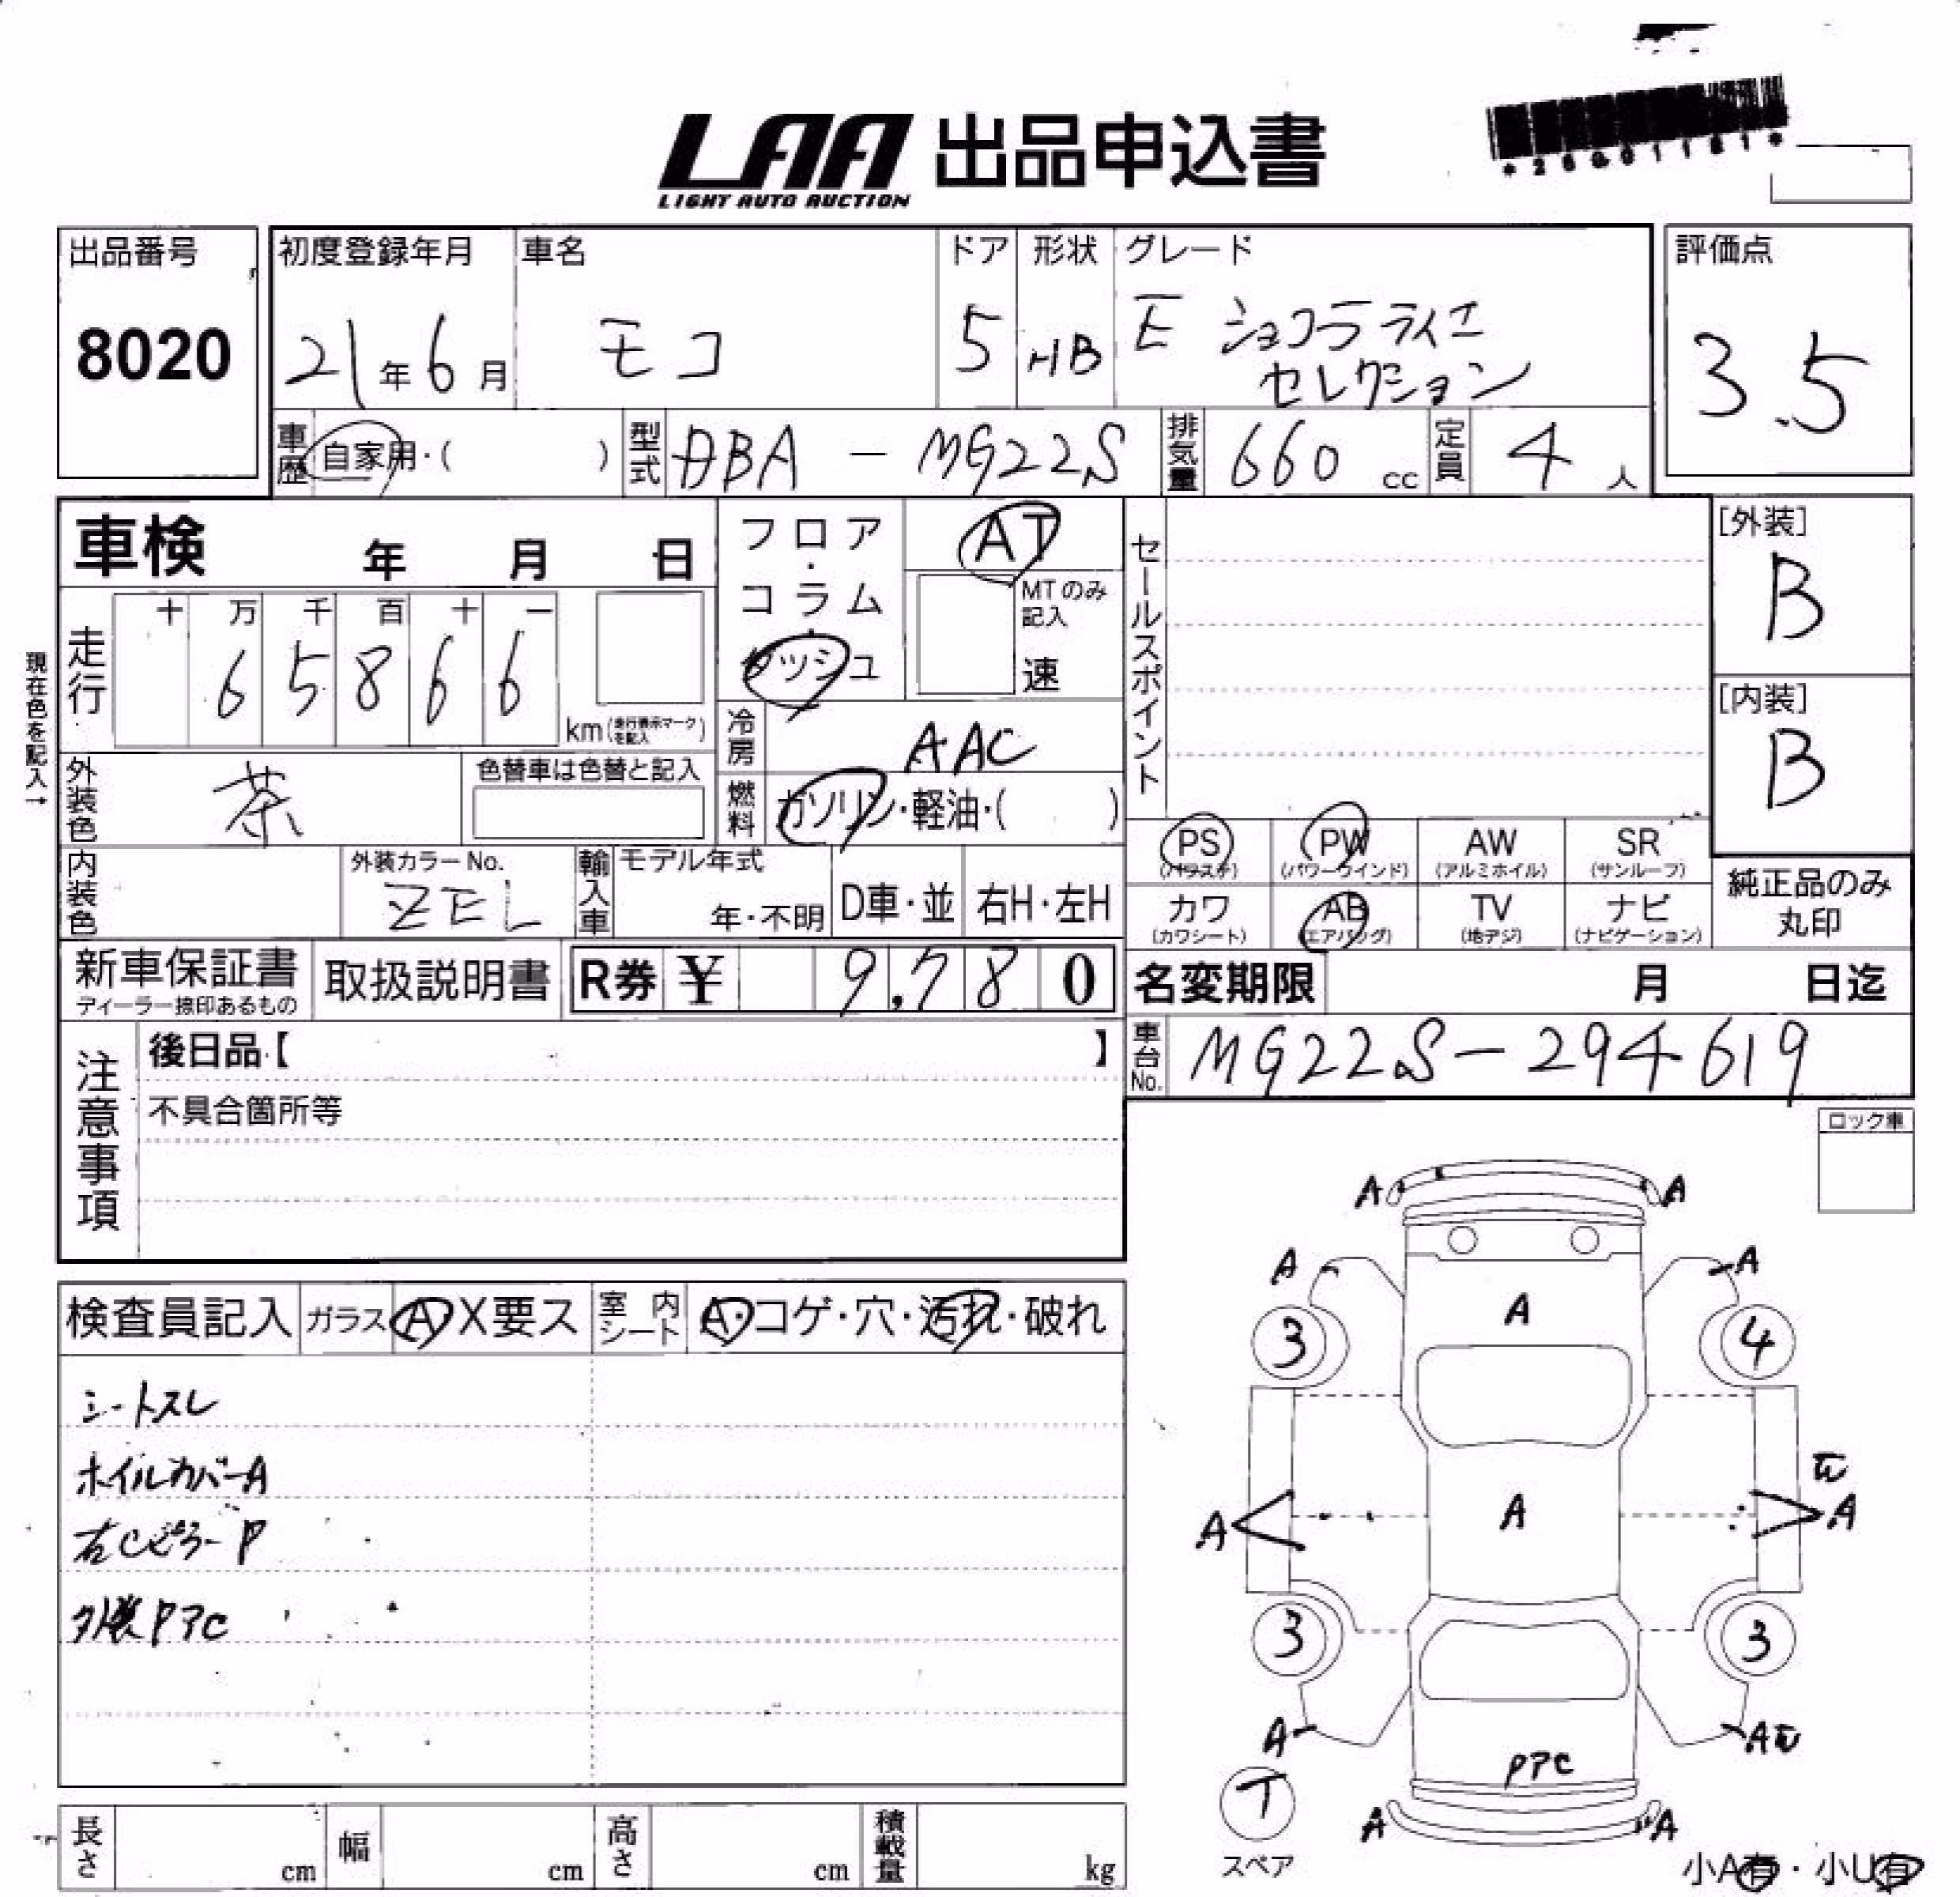 LAA 出品申込書
LIGHT AUTO AUCTION
出品番号
8020
初度登録年月
21年6月
車名
モコ
ドア
5
形状
HB
グレード
E ショコラティエ
セレクション
評価点
3.5
車歴
自家用・( )
型式
DBA - MG22S
排気量
660 cc
定員
4 人
車検 年 月 日
フロア・
コラム・
ダッシュ
AT
MTのみ
記入
速
セールスポイント
[外装]
B
[内装]
B
現在色を記入→
走行
十 万 千 百 十 一
6 5 8 6 6
km (走行表示マークを記入)
冷房
AAC
外装色
茶
色替車は色替と記入
燃料
ガソリン・軽油・( )
内装色
外装カラーNo.
ZEL
輸入車
モデル年式
年・不明
D車・並
右H・左H
PS
(パワステ)
PW
(パワーウインド)
AW
(アルミホイル)
SR
(サンルーフ)
カワ
(カワシート)
AB
(エアバッグ)
TV
(地デジ)
ナビ
(ナビゲーション)
純正品のみ
丸印
新車保証書
ディーラー捺印あるもの
取扱説明書
R券 ¥ 9,780
名変期限 月 日迄
車台No.
MG22S-294619
注意事項
後日品【 】
不具合箇所等
ロック車
検査員記入
ガラス
A X要ス
室内
シート
A・コゲ・穴・汚れ・破れ
シートスレ
ホイルカバーA
右Cピラー P
外装PアC
A A
A A
A
3 4
A
A A
3 3
A A
PアC
T
A A
スペア
小A有・小U有
長さ cm
幅 cm
高さ cm
積載量 kg